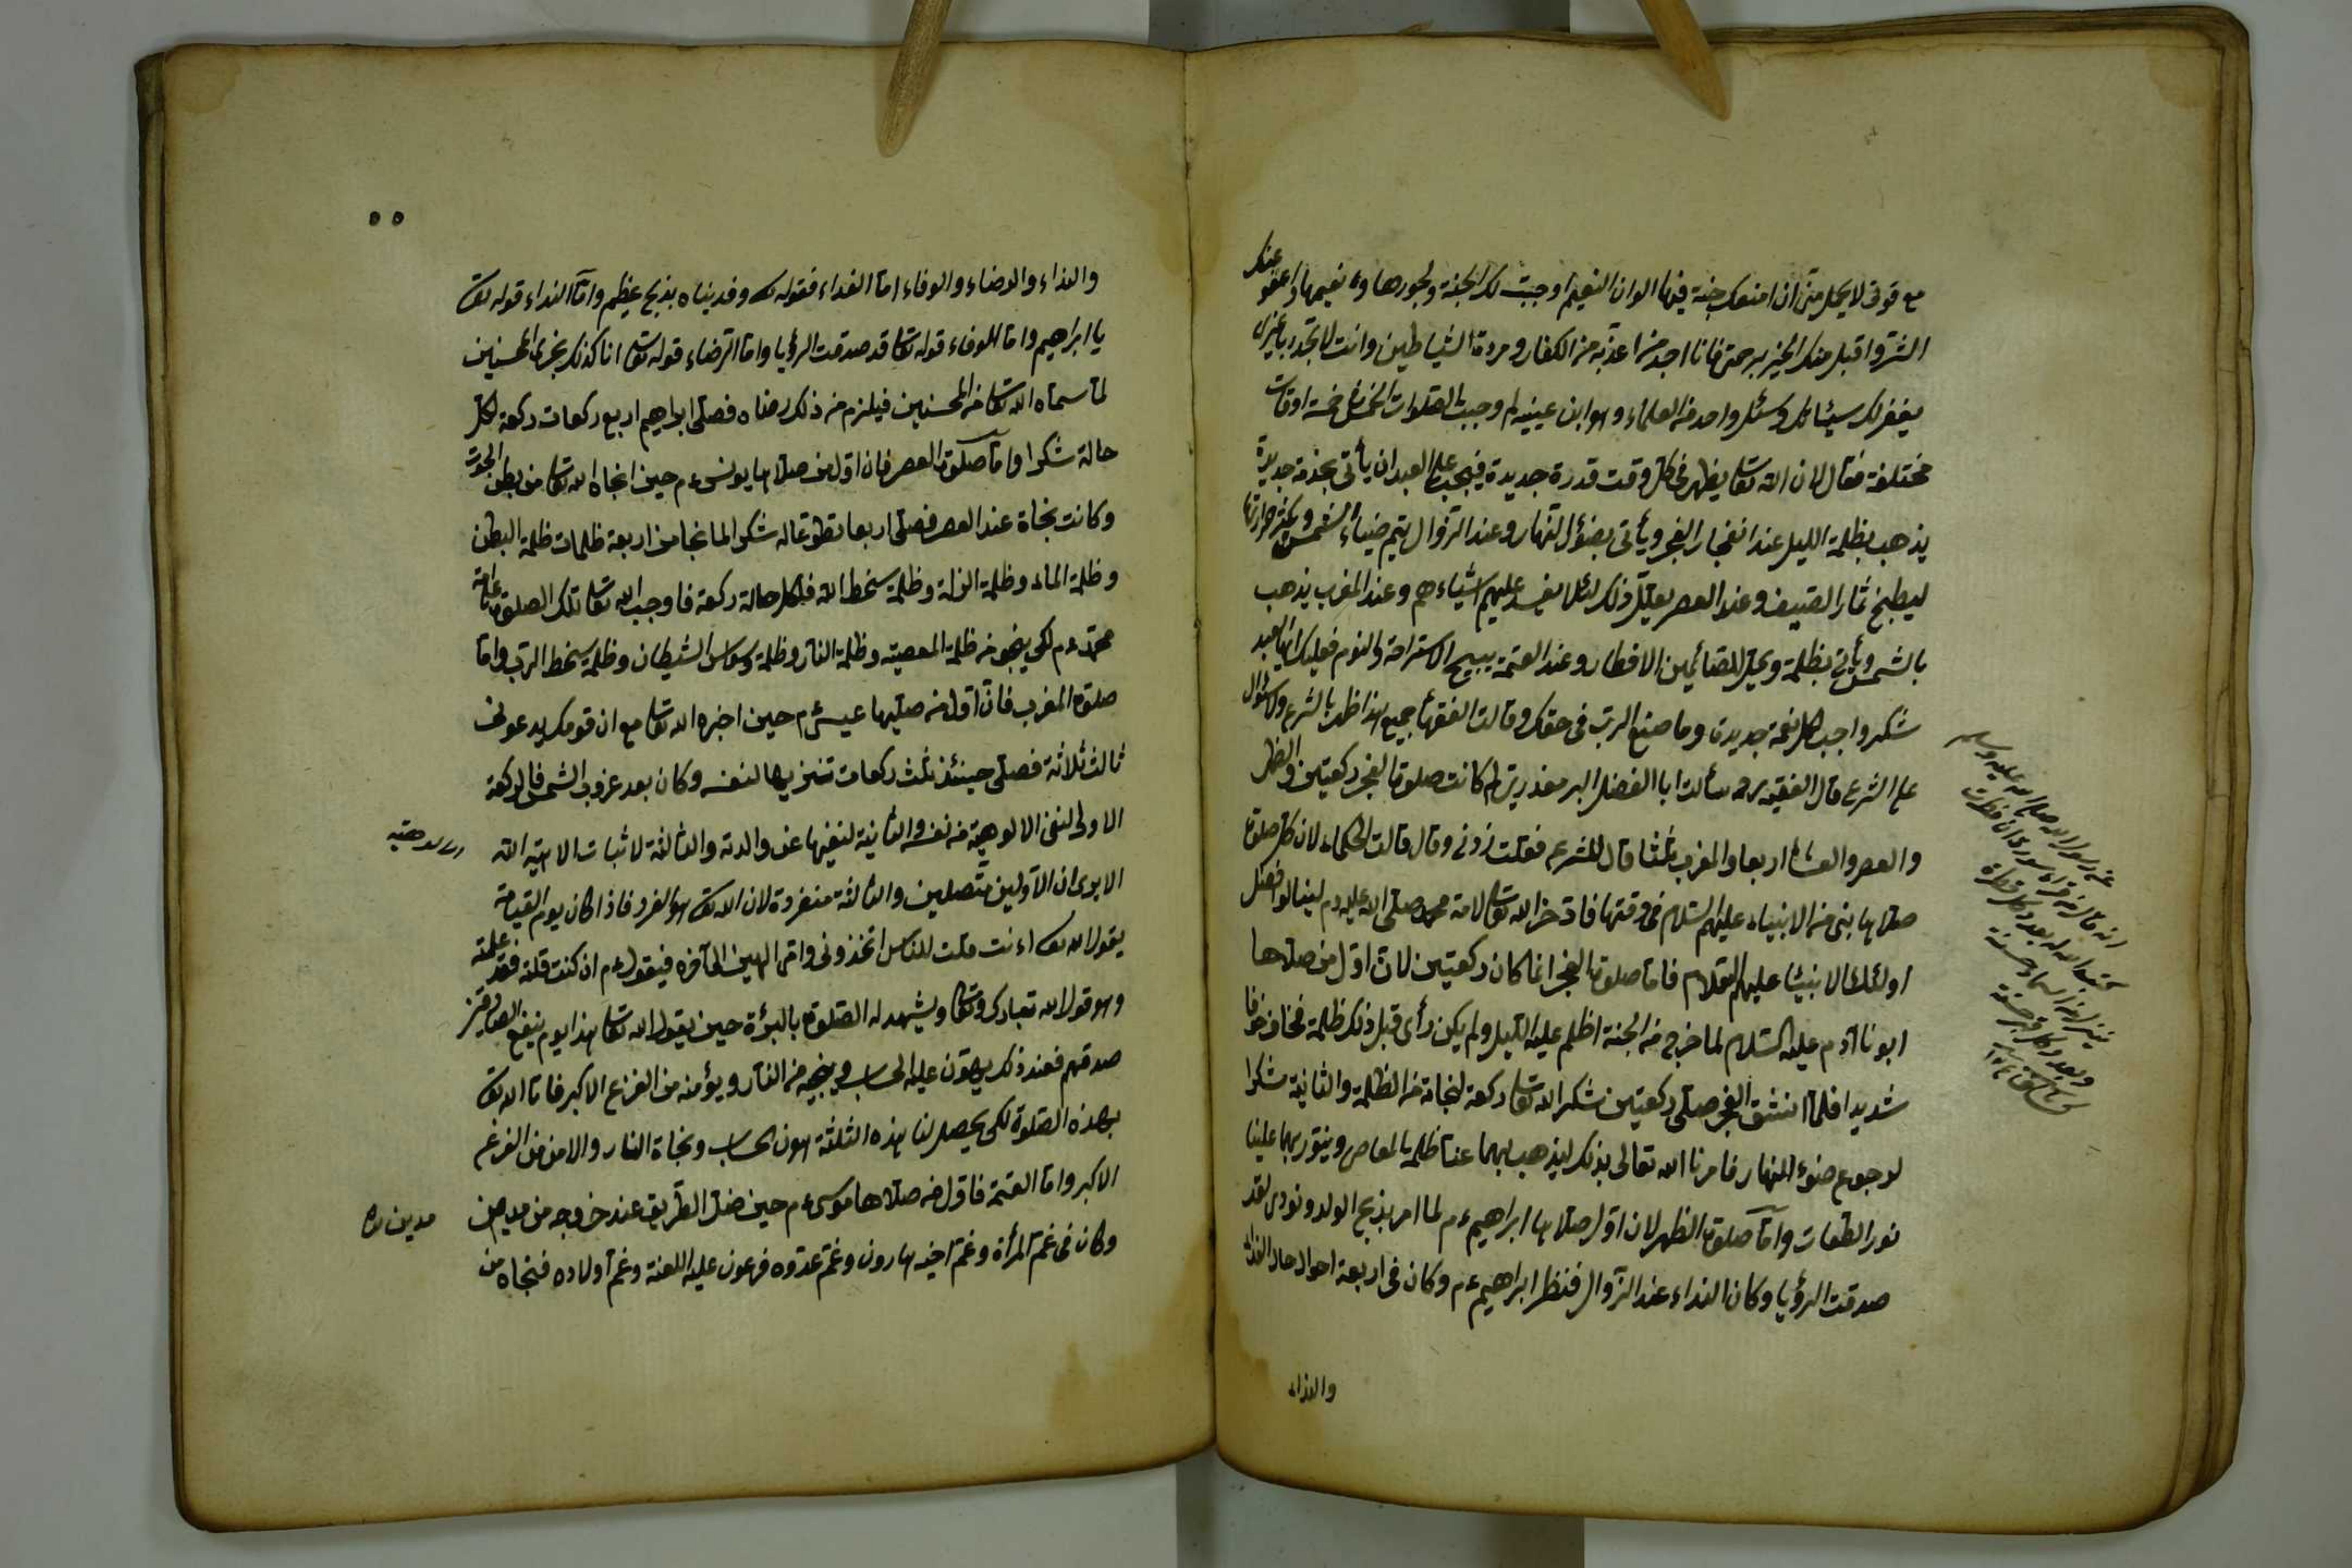 مع قوتى لا يحل منى ان امنعك جنة فيها الوان النعيم اوجبت لك الجنة ولحورها ونعيمها واعفو عنك
الشر واقبل منك الخير برحمتى فانا اجد من اعذبه من الكفار ومردة الشياطين وانت لا تجد ربا غيرى
يغفر لك سيئاتك وسئل واحد من العلماء وهو ابن عيينه لم وجبت الصلوات الخمس فى خمسة اوقات
مختلفة فقال لان الله تعا يظهر فى كل وقت قدرة جديدة فيجب على العبد ان يأتى بخدمة جديدة
يذهب بظلمة الليل عند انفجار الفجر ويأتى بضوء النهار وعند الزوال يتم ضياء الشمس ويكثر حرارتها
ليطبخ ثمار الصيف وعند العصر يعلل ذلك لئلا يفسد عليهم اشياءهم وعند المغرب يذهب
بالشمس ويأتى بظلمة ويحل للصائمين الافطار وعند العتمة يبيح الاستراحة والنوم فعليك ايها العبد
شكر واجب لكل نعمة جديدة وما صنع الرب فى حقك وقالت الفقهاء جميع هذا ظهر بالشرع ولا سؤال
على الشرع قال الفقيه رحمه سألت ابا الفضل البر مغدرى لم كانت صلوة الفجر ركعتين والظهر
والعصر والعشاء اربعا والمغرب ثلثا قال للشرع فقلت زدنى وقال قالت الحكماء لان كل صلوة
صلاها نبى من الانبياء عليهم السلام فى وقتها فادخر الله تعا لامة محمد صلى الله عليه وم لينالوا فضل
اولئك الانبياء عليهم السلام فاما صلوة الفجر انما كان ركعتين لان اول من صلاها
ابونا آدم عليه السلام لما خرج من الجنة اظلم عليه الليل ولم يكن رأى قبل ذلك ظلمة فخاف خوفا
شديدا فلما انشق الفجر صلى ركعتين شكرا لله تعا ركعة لنجاة من الظلمة والثانية شكرا
لرجوع ضوء النهار فامرنا الله تعالى بذلك ليذهب بهما عنا ظلمة المعاصى وينور بهما علينا
نور الطاعات واما صلوة الظهر لان اول صلاها ابراهيم ءم لما امر بذبح الولد ونودى لقد
صدقت الرؤيا وكان النداء عند الزوال فنظر ابراهيم ءم وكان فى اربعة احوال حال الفداء
والنداء
عن رسول الله صلى الله عليه وسلم
انه قال من قرأ سورة
كتب الله له بعدد كل قطرة
ينزل من السماء حسنة
والنداء والرضاء والوفاء اما الفداء فقوله تعا وفديناه بذبح عظيم واما النداء قوله تعا
يا ابراهيم واما الوفاء قوله تعا قد صدقت الرؤيا واما الرضاء قوله تعا انا كذلك نجزى المحسنين
لما سماه الله تعا من المحسنين فيلزم من ذلك رضاه فصلى ابراهيم اربع ركعات ركعة لكل
حالة شكرا واما صلوة العصر فان اول من صلاها يونس ءم حين انجاه الله تعا من بطن الحوت
وكانت نجاة عند العصر فصلى اربعا تطوعا له شكرا لما نجا من اربعة ظلمات ظلمة البطن
وظلمة الماء وظلمة الزلة وظلمة سخط الله فلكل حالة ركعة فاوجب الله تعا تلك الصلوة على امة
محمد ءم لكى ينجو من ظلمة المعصية وظلمة النار وظلمة وسواس الشيطان وظلمة سخط الرب واما
صلوة المغرب فان اول من صليها عيسى ءم حين اخبره الله تعا مع ان قومك يدعونى
ثالث ثلاثة فصلى حينئذ ثلث ركعات تنزيها لنفسه وكان بعد غروب الشمس فالركعة
الاولى لنفى الالوهية من نفسه والثانية لنفيها عن والدته والثالثة لاثبات الالهية الله
الا يرى ان الاولين متصلين والثالثة منفردة لان الله تعا هو الفرد فاذا كان يوم القيامة
يقول الله تعا اءنت قلت للناس اتخذونى وامى الهين الى آخره فيقول ءم ان كنت قلته فقد علمته
وهو قول الله تبارك وتعا ويشهد له الصلوة بالبرؤة حين يقول الله تعا هذا يوم ينفع الصادقين
صدقهم فعند ذلك يهون عليه الحساب وينجيه من النار ويؤمنه من الفزع الاكبر فامر الله تعا
بهذه الصلوة لكى يحصل لنا هذه الثلثة هون الحساب ونجاة النار والامن من الفزع
الاكبر واما العتمة فاول من صلاها موسى ءم حين ضل الطريق عند خروجه من مدين
مدين
وكان فى غم المرأة وغم اخيه هارون وغم عدوه فرعون عليه اللعنة وغم اولاده فنجاه من